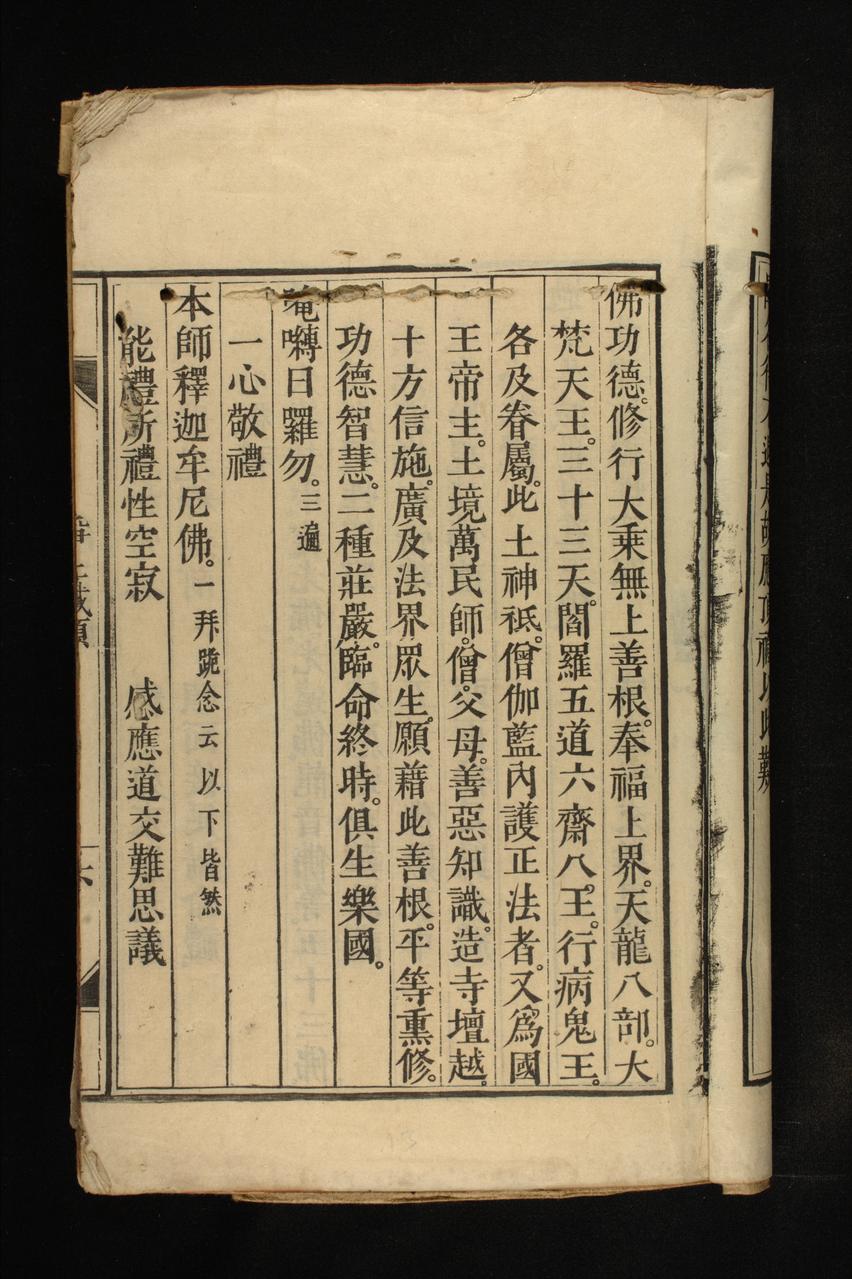 佛功德。修行大乘無上善根。奉福上界。天龍八部。大
梵天王。三十三天。閻羅五道六齋八王。行病鬼王。
各及眷屬。此土神祇。僧伽藍內護正法者。又為國
王帝主。土境萬民師。僧。父母。善惡知識。造寺壇越。
十方信施。廣及法界眾生。願藉此善根。平等熏修。
功德智慧。二種莊嚴。臨命終時。俱生樂國。
唵囀日囉勿。三遍
一心敬禮
本師釋迦牟尼佛。一拜跪念云以下皆然
能禮所禮性空寂　感應道交難思議